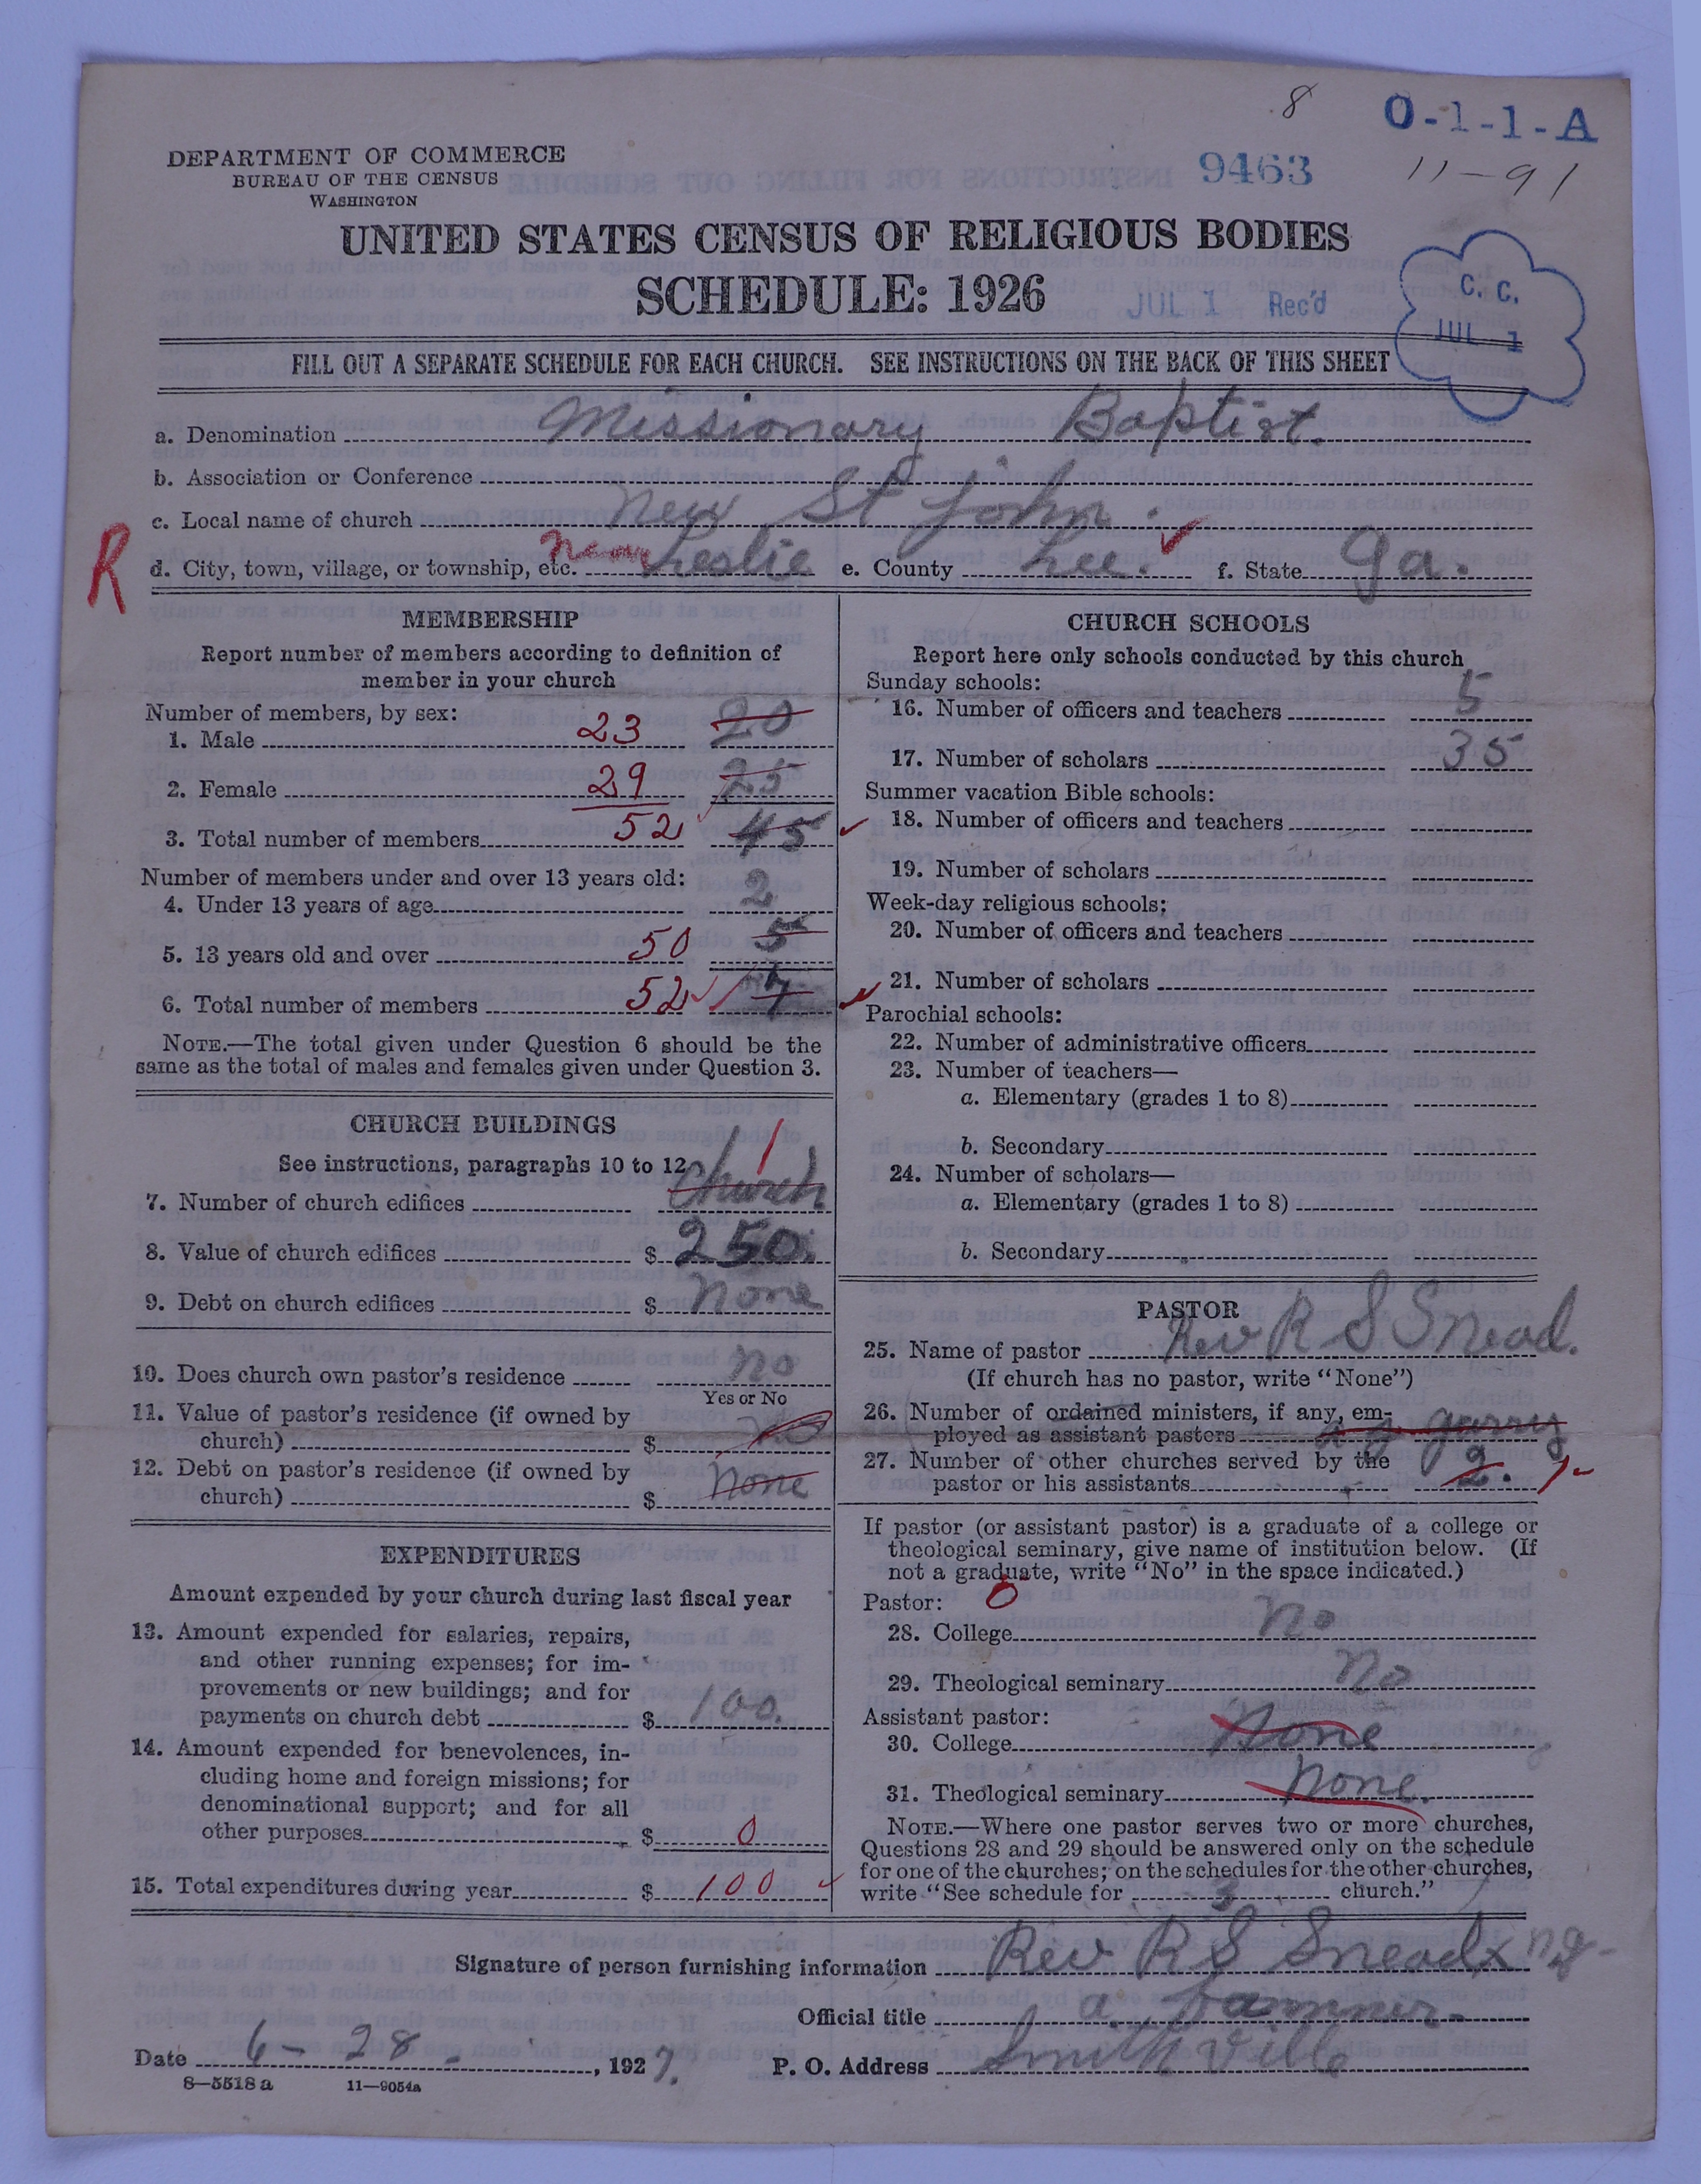 8
O-1-1-A
DEPARTMENT OF COMMERCE
BUREAU OF THE CENSUS
WASHINGTON
9463
11-91
UNITED STATES CENSUS OF RELIGIOUS BODIES
SCHEDULE: 1926
JUL 1 Rec'd
C. C.
JUL 1
FILL OUT A SEPARATE SCHEDULE FOR EACH CHURCH. SEE INSTRUCTIONS ON THE BACK OF THIS SHEET
a. Denomination Missionary Baptist.
b. Association or Conference
c. Local name of church New St John.
R
d. City, town, village, or township, etc. near Leslie e. County Lee. f. State Ga.
MEMBERSHIP
Report number of members according to definition of
member in your church
Number of members, by sex:
1. Male 23 20
2. Female 29 25
3. Total number of members 52 45
Number of members under and over 13 years old:
4. Under 13 years of age 2
5. 13 years old and over 50 5
6. Total number of members 52 7
NOTE.—The total given under Question 6 should be the
same as the total of males and females given under Question 3.
CHURCH BUILDINGS
See instructions, paragraphs 10 to 12
7. Number of church edifices 1 1 Church
8. Value of church edifices $ 250.
9. Debt on church edifices $ None
10. Does church own pastor's residence No
Yes or No
11. Value of pastor's residence (if owned by
church) $ no
12. Debt on pastor's residence (if owned by
church) $ None
EXPENDITURES
Amount expended by your church during last fiscal year
13. Amount expended for salaries, repairs,
and other running expenses; for im-
provements or new buildings; and for
payments on church debt $ 100.
14. Amount expended for benevolences, in-
cluding home and foreign missions; for
denominational support; and for all
other purposes $ 0
15. Total expenditures during year $ 100
CHURCH SCHOOLS
Report here only schools conducted by this church
Sunday schools:
16. Number of officers and teachers 5
17. Number of scholars 35
Summer vacation Bible schools:
18. Number of officers and teachers
19. Number of scholars
Week-day religious schools:
20. Number of officers and teachers
21. Number of scholars
Parochial schools:
22. Number of administrative officers
23. Number of teachers—
a. Elementary (grades 1 to 8)
b. Secondary
24. Number of scholars—
a. Elementary (grades 1 to 8)
b. Secondary
PASTOR
25. Name of pastor Rev R S Snead.
(If church has no pastor, write "None")
26. Number of ordained ministers, if any, em-
ployed as assistant pastors
27. Number of other churches served by the
pastor or his assistants 2.
If pastor (or assistant pastor) is a graduate of a college or
theological seminary, give name of institution below. (If
not a graduate, write "No" in the space indicated.)
Pastor: 0
28. College No
29. Theological seminary No
Assistant pastor:
30. College None
31. Theological seminary None.
NOTE.—Where one pastor serves two or more churches,
Questions 28 and 29 should be answered only on the schedule
for one of the churches; on the schedules for the other churches,
write "See schedule for 3 church."
Signature of person furnishing information Rev R S Snead
Official title
Date 6-28-, 1927. P. O. Address Smithville
8—5518 a 11—9054a